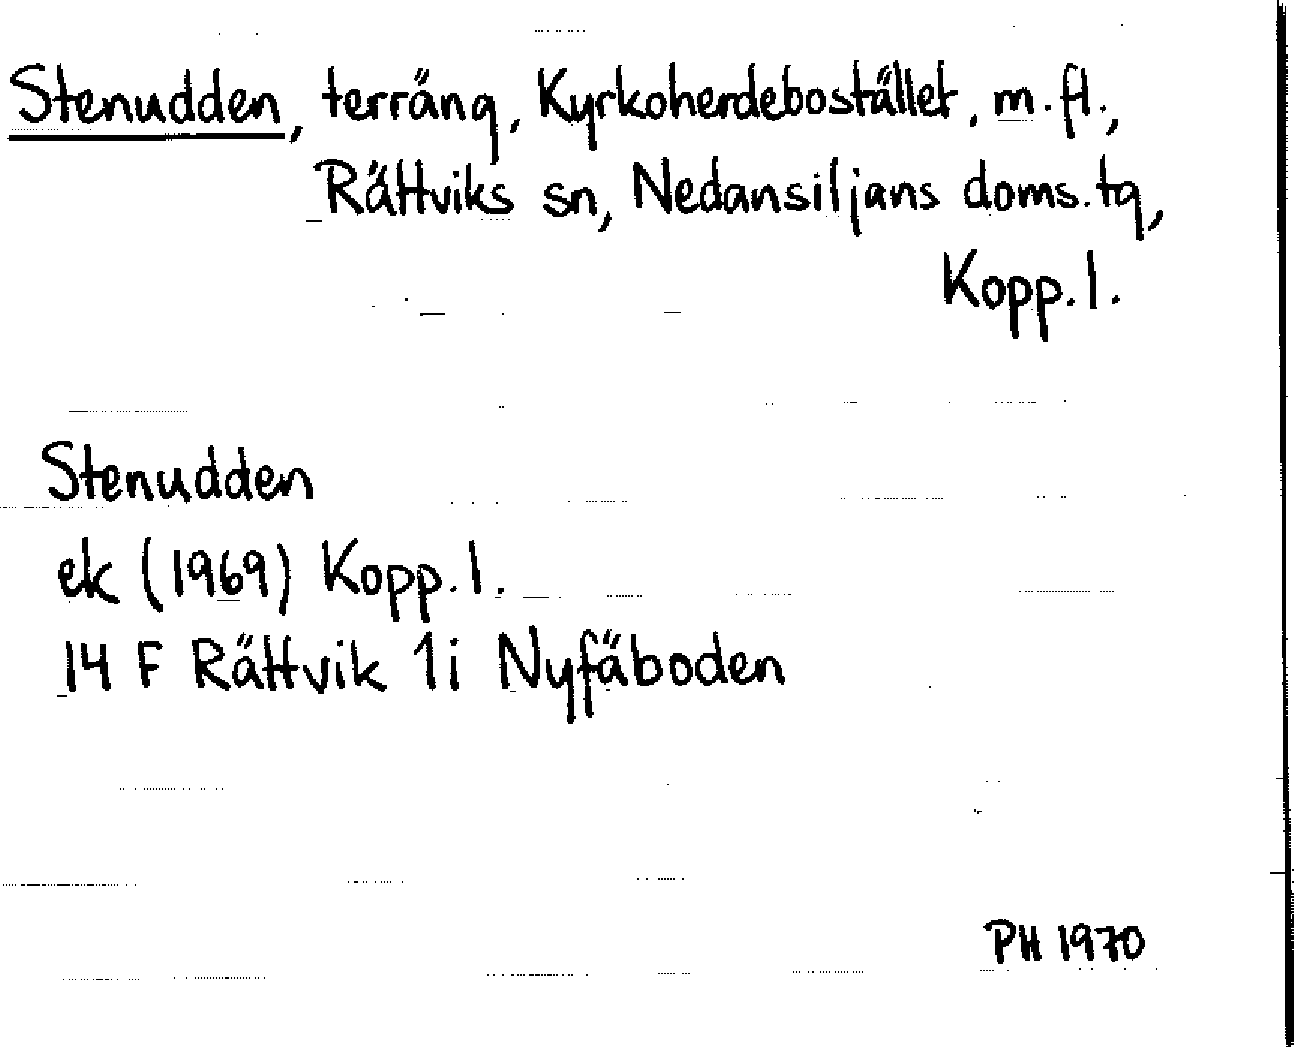 Stenudden, terräng, Kyrkoherdebostället, m.fl.,
Rättviks sn, Nedansiljans doms.tg,
Kopp.l.
Stenudden
ek (1969) Kopp.l.
14 F Rättvik 1i Nyfäboden
PH 1970